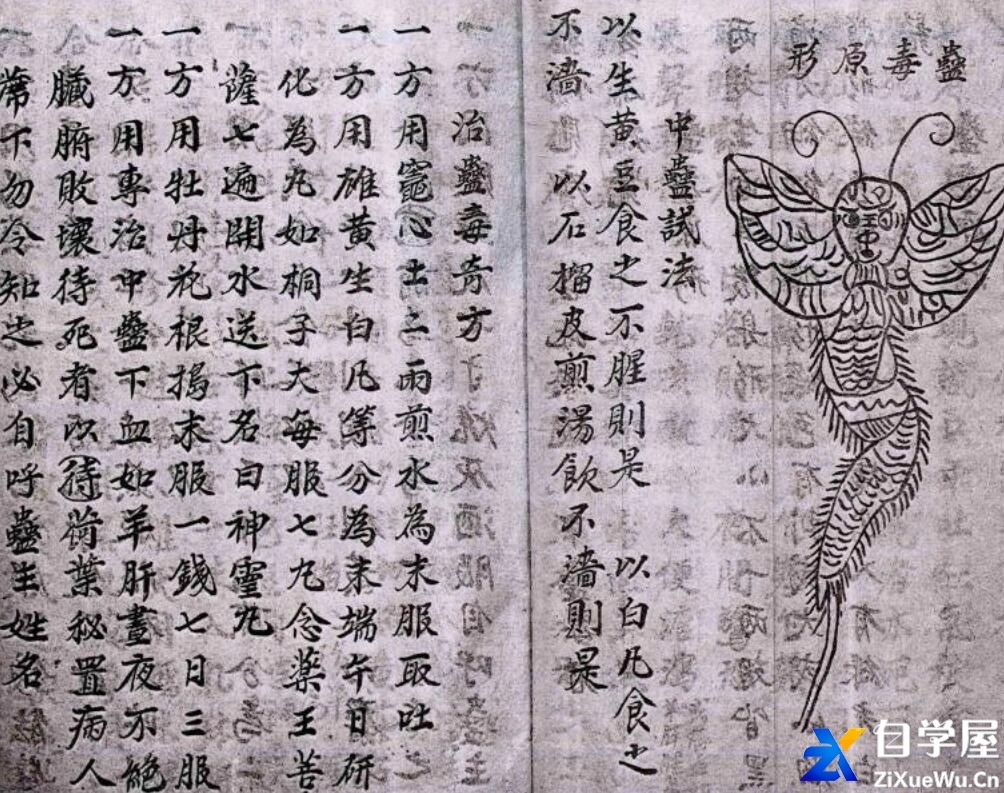 蠱毒原形
中蠱試法
以生黄豆食之不腥則是 以白凡食之
不濇 以石榴皮煎湯飲不濇則是
治蠱毒奇方
一方用竈心土二兩煎水為末服取吐
一方用雄黄生白凡等分為末端午日研
化為丸如桐子大每服七丸念藥王菩
薩七遍開水送下名曰神靈丸
一方用牡丹花根搗末服一錢七日三服
一方用專治中蠱下血如羊肝晝夜不絕
臟腑敗壞待死者以待荷葉秘置病人
席下勿令知之必自呼蠱生姓名
自学屋
ZiXueWu.Cn